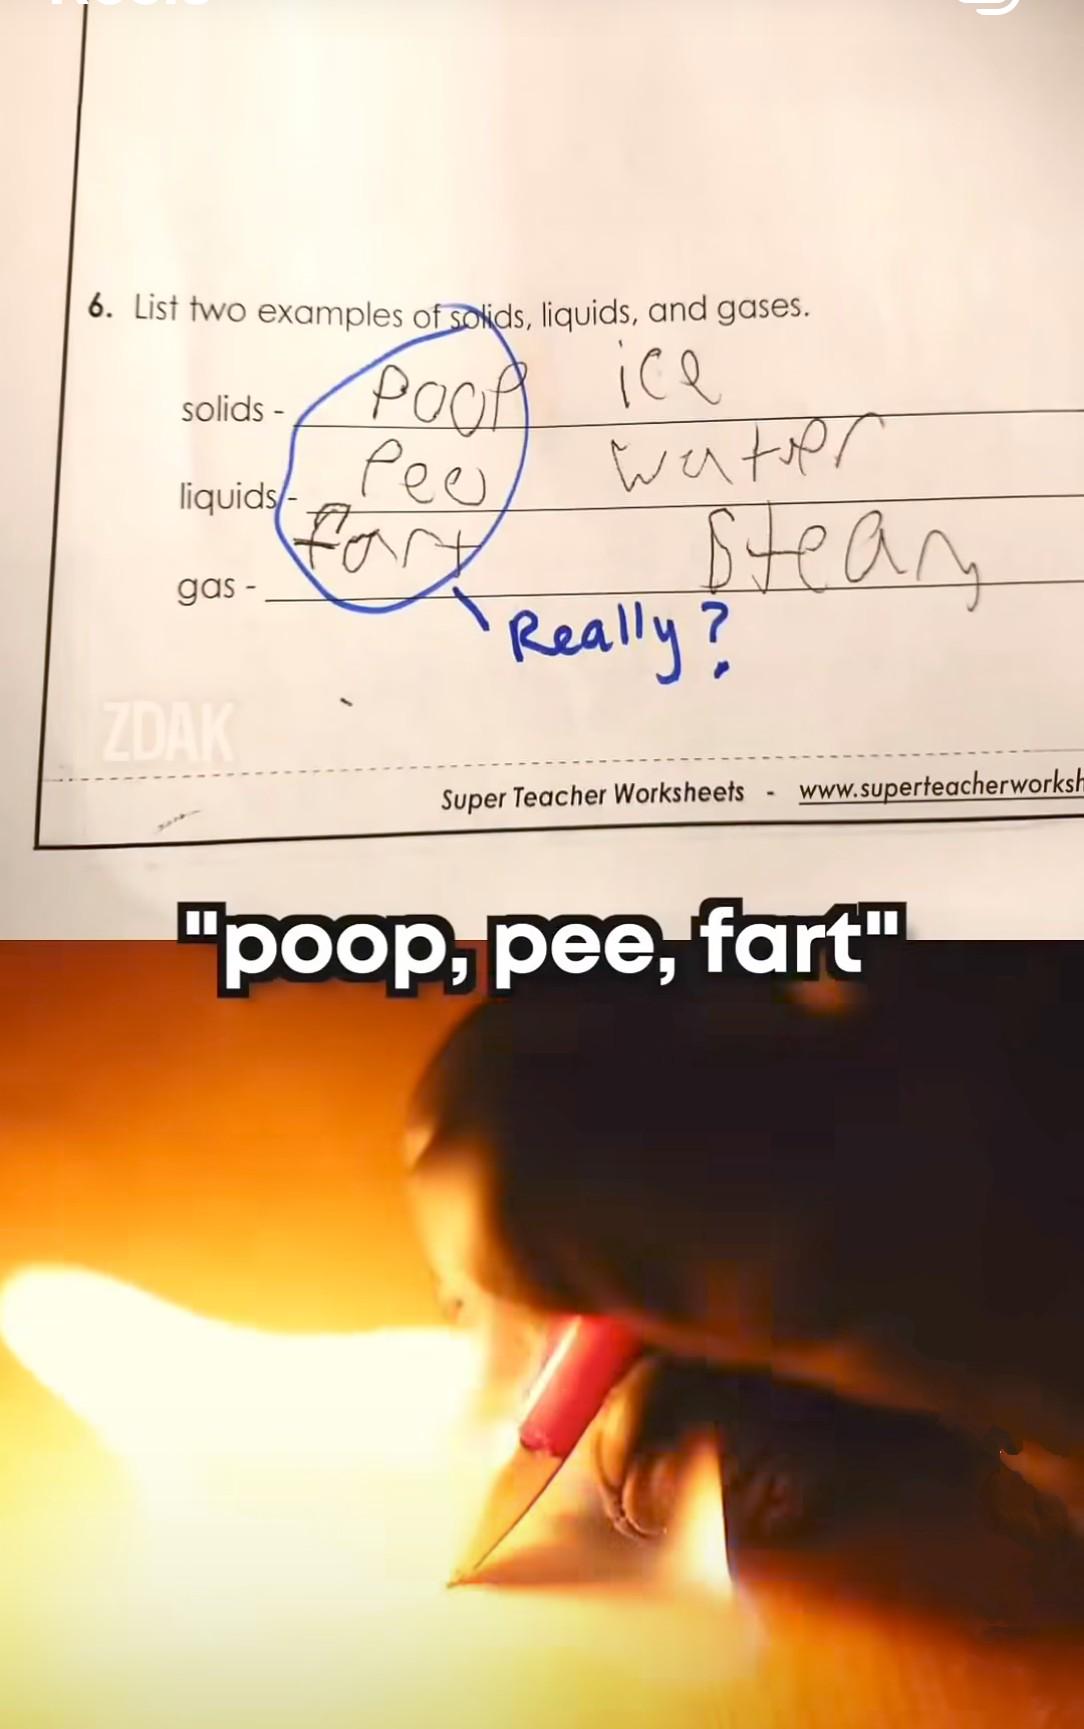 6. List two examples of solids, liquids, and gases.
solids - Poop ice
liquids - Pee water
gas - fart Steam
Really?
ZDAK
Super Teacher Worksheets - www.superteacherworksh
"poop, pee, fart"